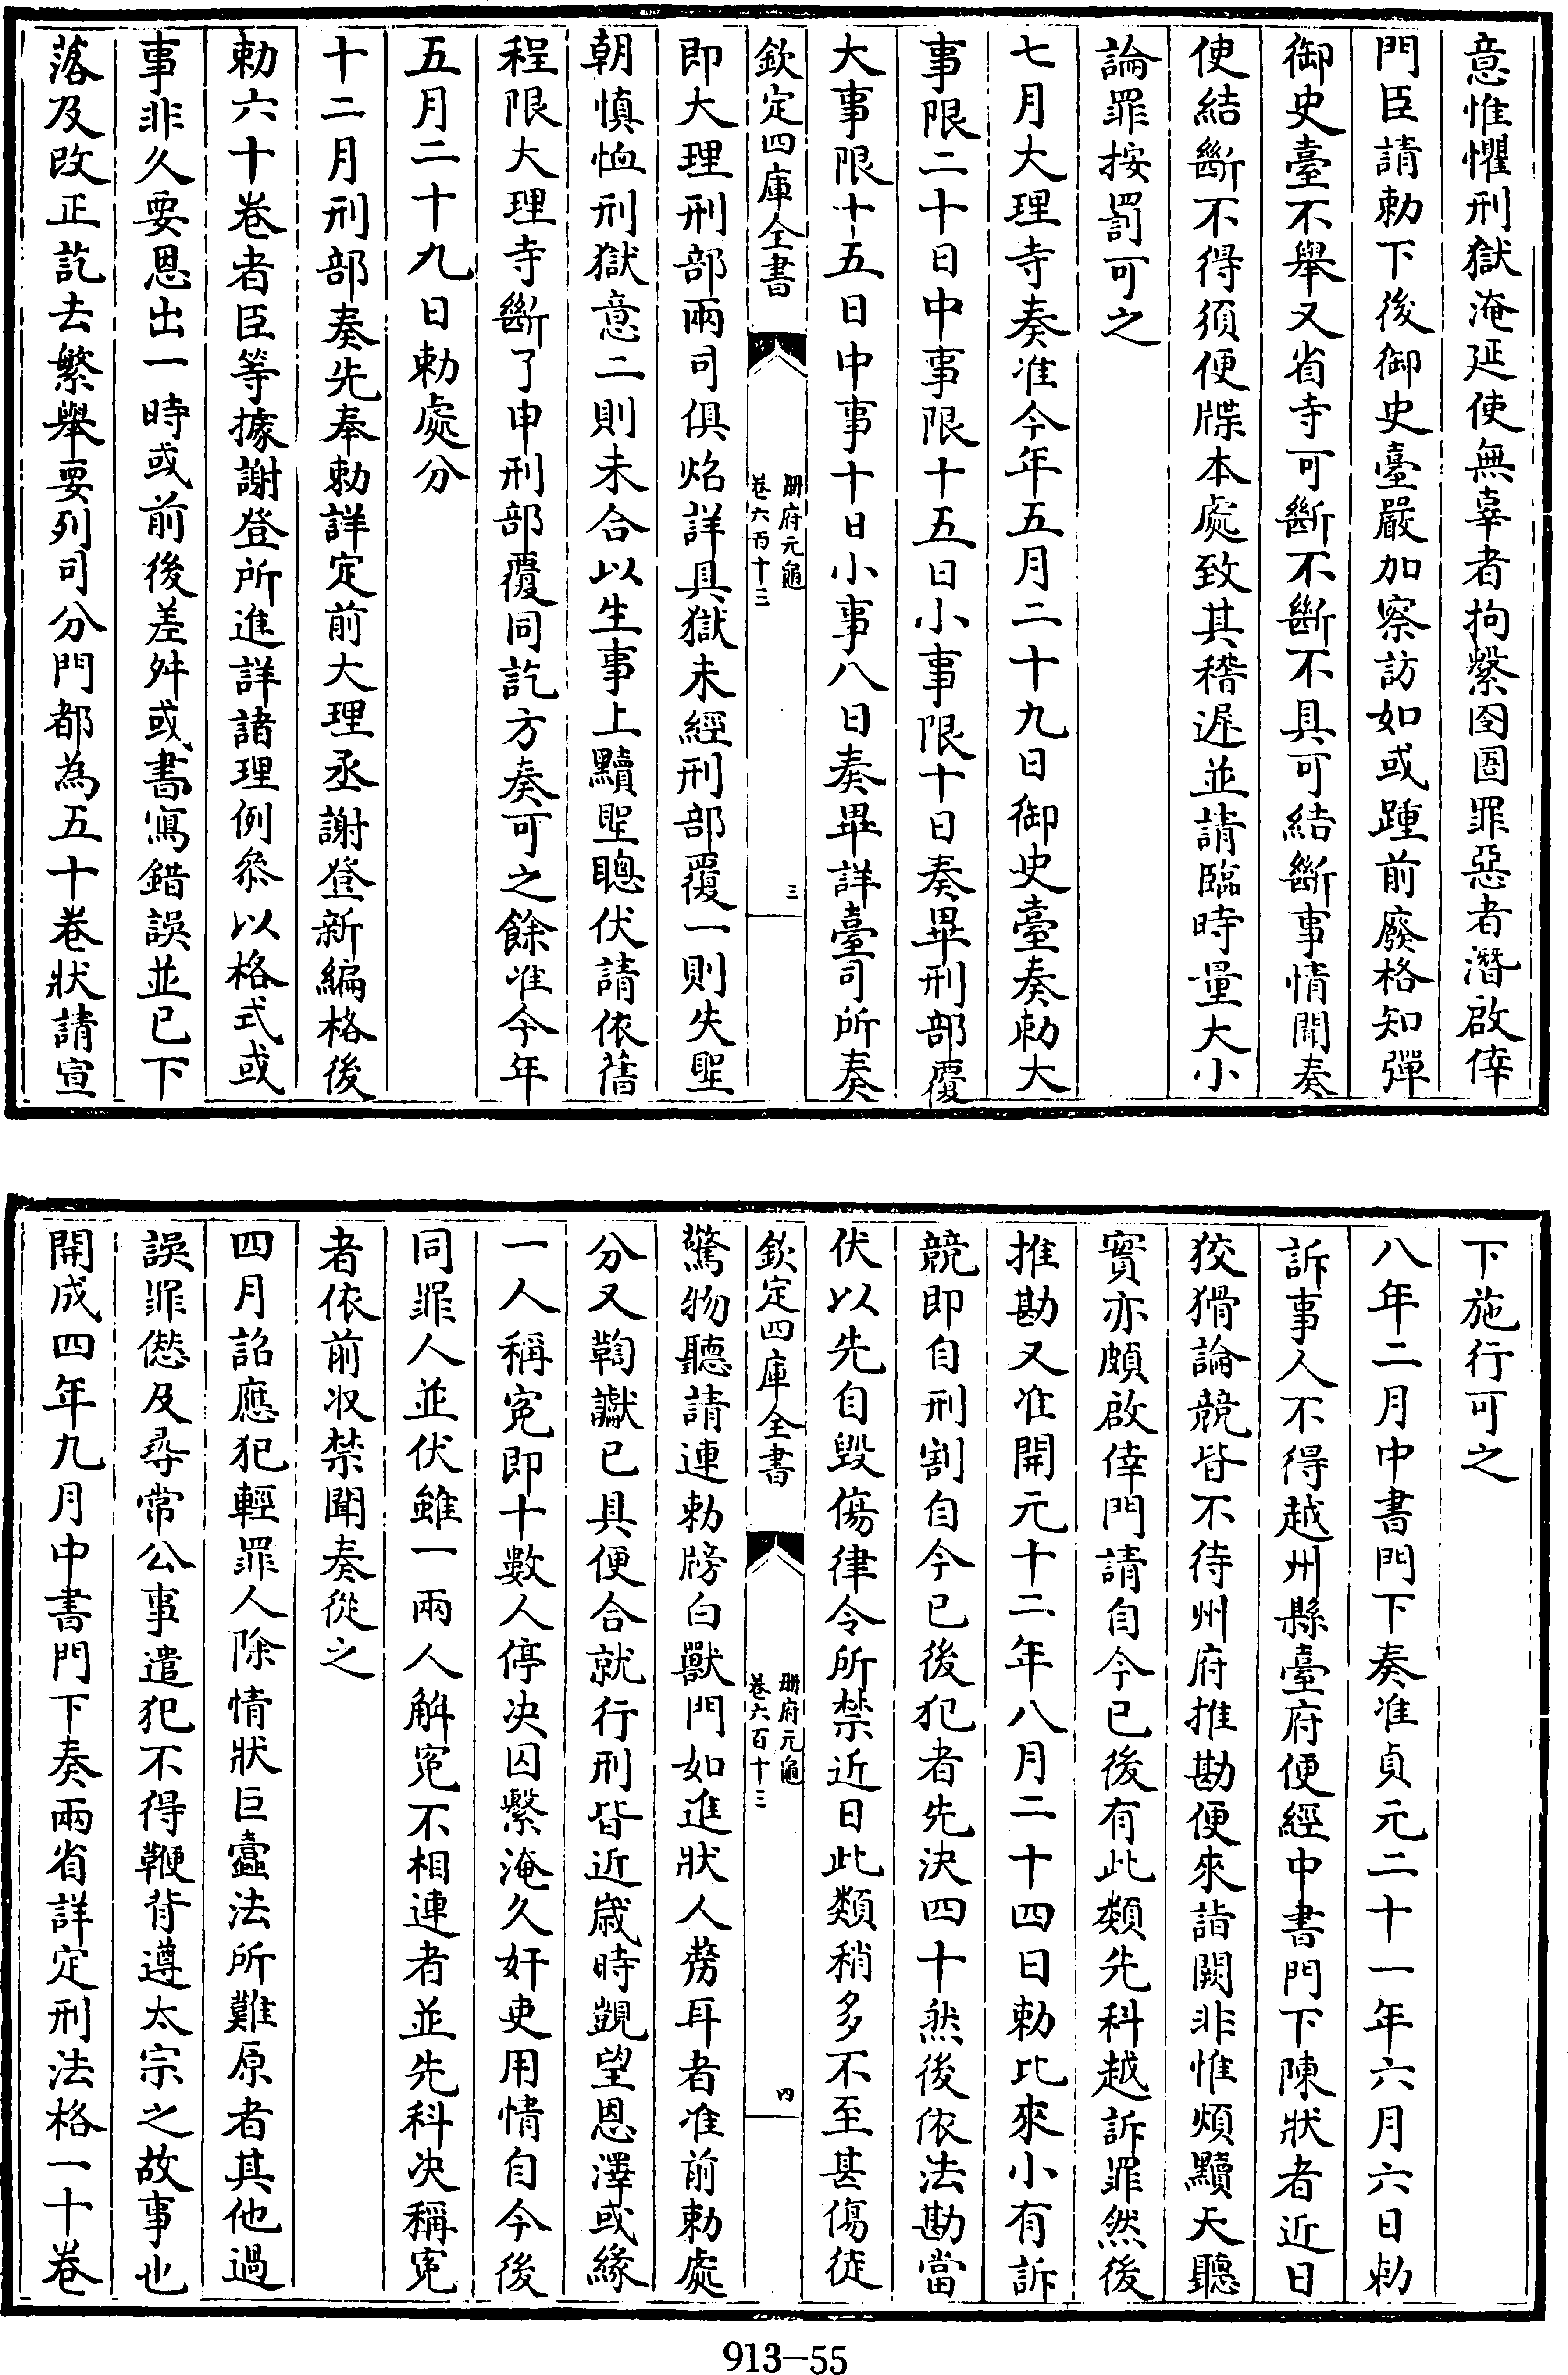 意惟懼刑獄淹延使無辜者拘繫囹圄罪惡者潛啟倖
門臣請勅下後御史臺嚴加察訪如或踵前廢格知彈
御史臺不舉又省寺可斷不斷不具可結斷事情聞奏
使結斷不得須便牒本處致其稽遲並請臨時量大小
論罪按罰可之
七月大理寺奏准今年五月二十九日御史臺奏勅大
事限二十日中事限十五日小事限十日奏畢刑部覆
大事限十五日中事十日小事八日奏畢詳臺司所奏
欽定四庫全書
冊府元龜
卷六百十三
三
即大理刑部兩司俱焰詳具獄未經刑部覆一則失聖
朝慎恤刑獄意二則未合以生事上黷聖聰伏請依舊
程限大理寺斷了申刑部覆同訖方奏可之餘准今年
五月二十九日勅處分
十二月刑部奏先奉勅詳定前大理丞謝登新編格後
勅六十卷者臣等據謝登所進詳諸理例叅以格式或
事非久要恩出一時或前後差舛或書寫錯誤並已下
落及改正訖去繁舉要列司分門都為五十卷狀請宣
下施行可之
八年二月中書門下奏准貞元二十一年六月六日勅
訴事人不得越州縣臺府便經中書門下陳狀者近日
狡猾論競皆不待州府推勘便來詣闕非惟煩黷天聽
實亦頗啟倖門請自今已後有此類先科越訴罪然後
推勘又准開元十二年八月二十四日勅比來小有訴
競即自刑割自今已後犯者先決四十然後依法勘當
伏以先自毀傷律令所禁近日此類稍多不至甚傷徒
欽定四庫全書
冊府元龜
卷六百十三
四
驚物聽請連勅牓白獸門如進狀人剺耳者准前勅處
分又鞫讞已具便合就行刑皆近歲時覬望恩澤或緣
一人稱冤即十數人停决囚繫淹久奸吏用情自今後
同罪人並伏雖一兩人解冤不相連者並先科决稱冤
者依前收禁聞奏從之
四月詔應犯輕罪人除情狀巨蠹法所難原者其他過
誤罪愆及尋常公事遣犯不得鞭背遵太宗之故事也
開成四年九月中書門下奏兩省詳定刑法格一十卷
913-55